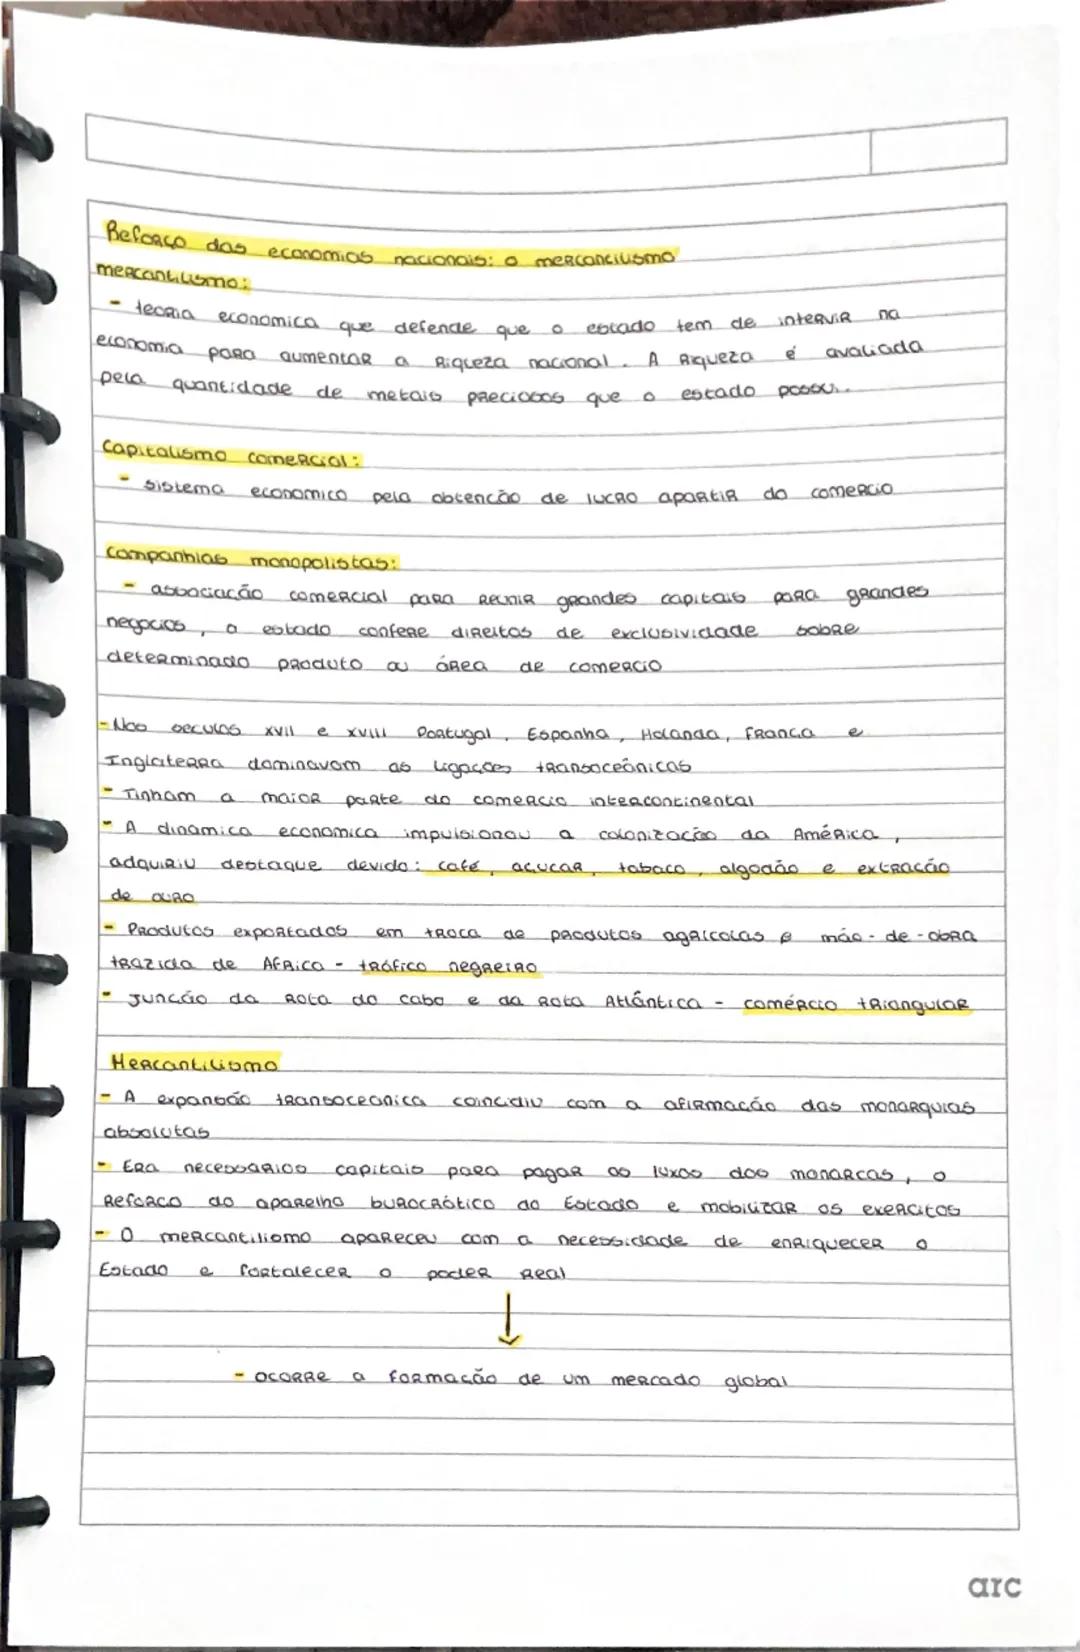 Reforço das economias nacionais: o mercancilismo
mercantilismo:
- teoria economica que defende que o estado tem de intervir na
economia para aumentar a riqueza nacional. A riqueza é avaliada
pela quantidade de metais preciosos que o estado possui.
Capitalismo comercial:
- sistema economico pela obtenção de lucro apartir do comercio
Companhias monopolistas:
- associação comercial para reunir grandes capitais para grandes
negocios, o estado confere direitos de exclusividade sobre
determinado produto ou área de comercio
- Nos seculos XVII e XVIII Portugal, Espanha, Holanda, França e
Inglaterra dominavam as ligações transoceânicas
- Tinham a maior parte do comercio intercontinental
- A dinamica economica impulsionou a colonização da América,
adquiriu destaque devido: café, açucar, tabaco, algodão e extração
de ouro
- Produtos exportados em troca de produtos agricolas e mão-de-obra
trazida de Africa - tráfico negreiro
- Junção da Rota do cabo e da Rota Atlântica - comércio triangular
Mercantilismo
- A expansão transoceanica coincidiu com a afirmação das monarquias
absolutas
- Era necessarios capitais para pagar os luxos dos monarcas, o
reforço do aparelho burocrático do Estado e mobilizar os exercitos
- O mercantilismo apareceu com a necessidade de enriquecer o
Estado e fortalecer o poder real
↓
- ocorre a formação de um mercado global
arc